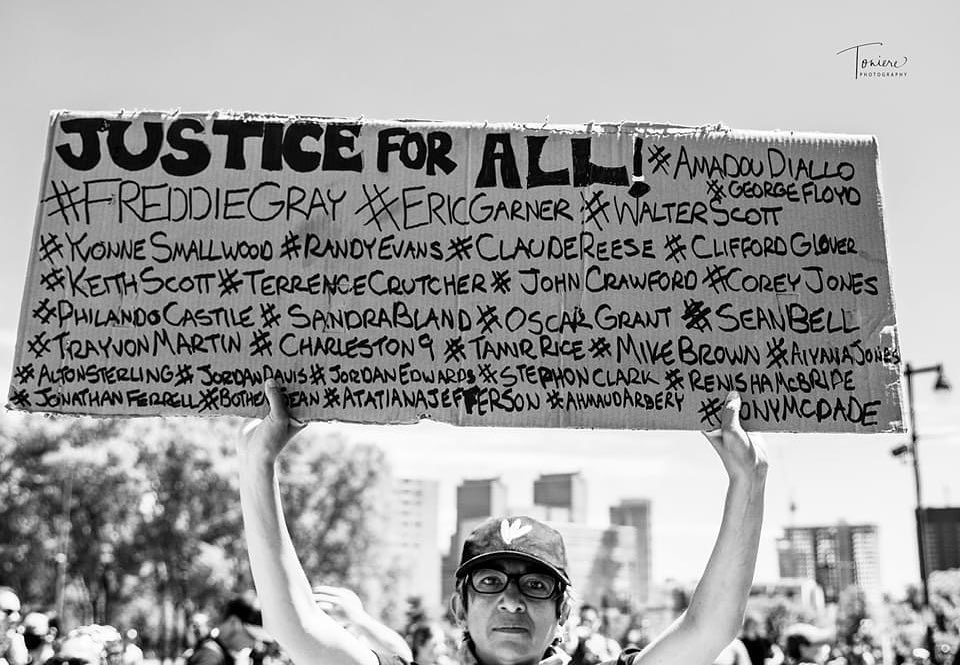 Toniere
PHOTOGRAPHY
JUSTICE FOR ALL! #AMADOU DIALLO
#GEORGE FLOYD
#FREDDIEGRAY #ERICGARNER #WALTERSCOTT
#YVONNE SMALLWOOD #RANDYEVANS #CLAUDEREESE #CLIFFORD GLOVER
#KEITH SCOTT #TERRENCECRUTCHER #JOHN CRAWFORD #COREY JONES
#PHILANDO CASTILE #SANDRABLAND #OSCAR GRANT #SEANBELL
#TRAYVON MARTIN #CHARLESTON 9 #TAMIR RICE #MIKE BROWN #AIYANA JONES
#ALTONSTERLING #JORDAN DAVIS #JORDAN EDWARDS #STEPHON CLARK #RENISHA MCBRIDE
#JONATHAN FERRELL #BOTHEM JEAN #ATATIANA JEFFERSON #AHMAUD ARBERY #TONY MCDADE